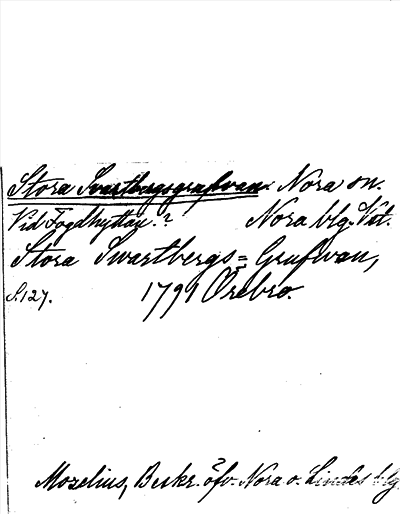 Stora Svartbergsgrufvan. Nora sn.
Vid Fogdhyttan? Nora blg. Vstl.
Stora Swartbergs= Grufwan,
S. 127. 1791 Örebro.
Mozelius, Beskr. öfv. Nora o. Lindes blg.